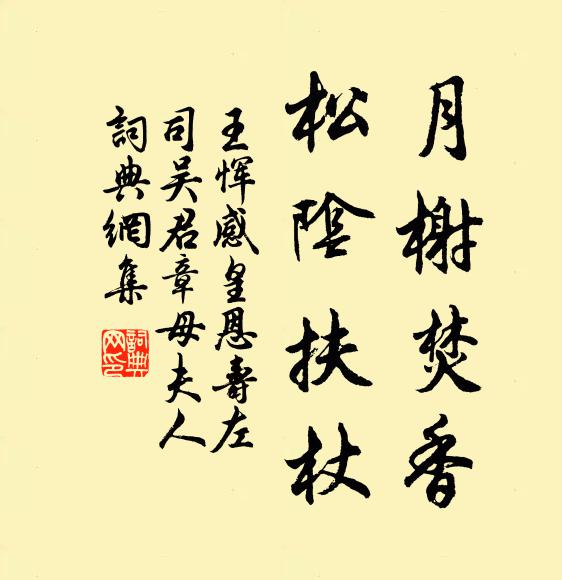 月榭焚香
松陰扶杖
王惲感皇恩壽左
司吳君章母夫人
詞典網集
詞典
网印